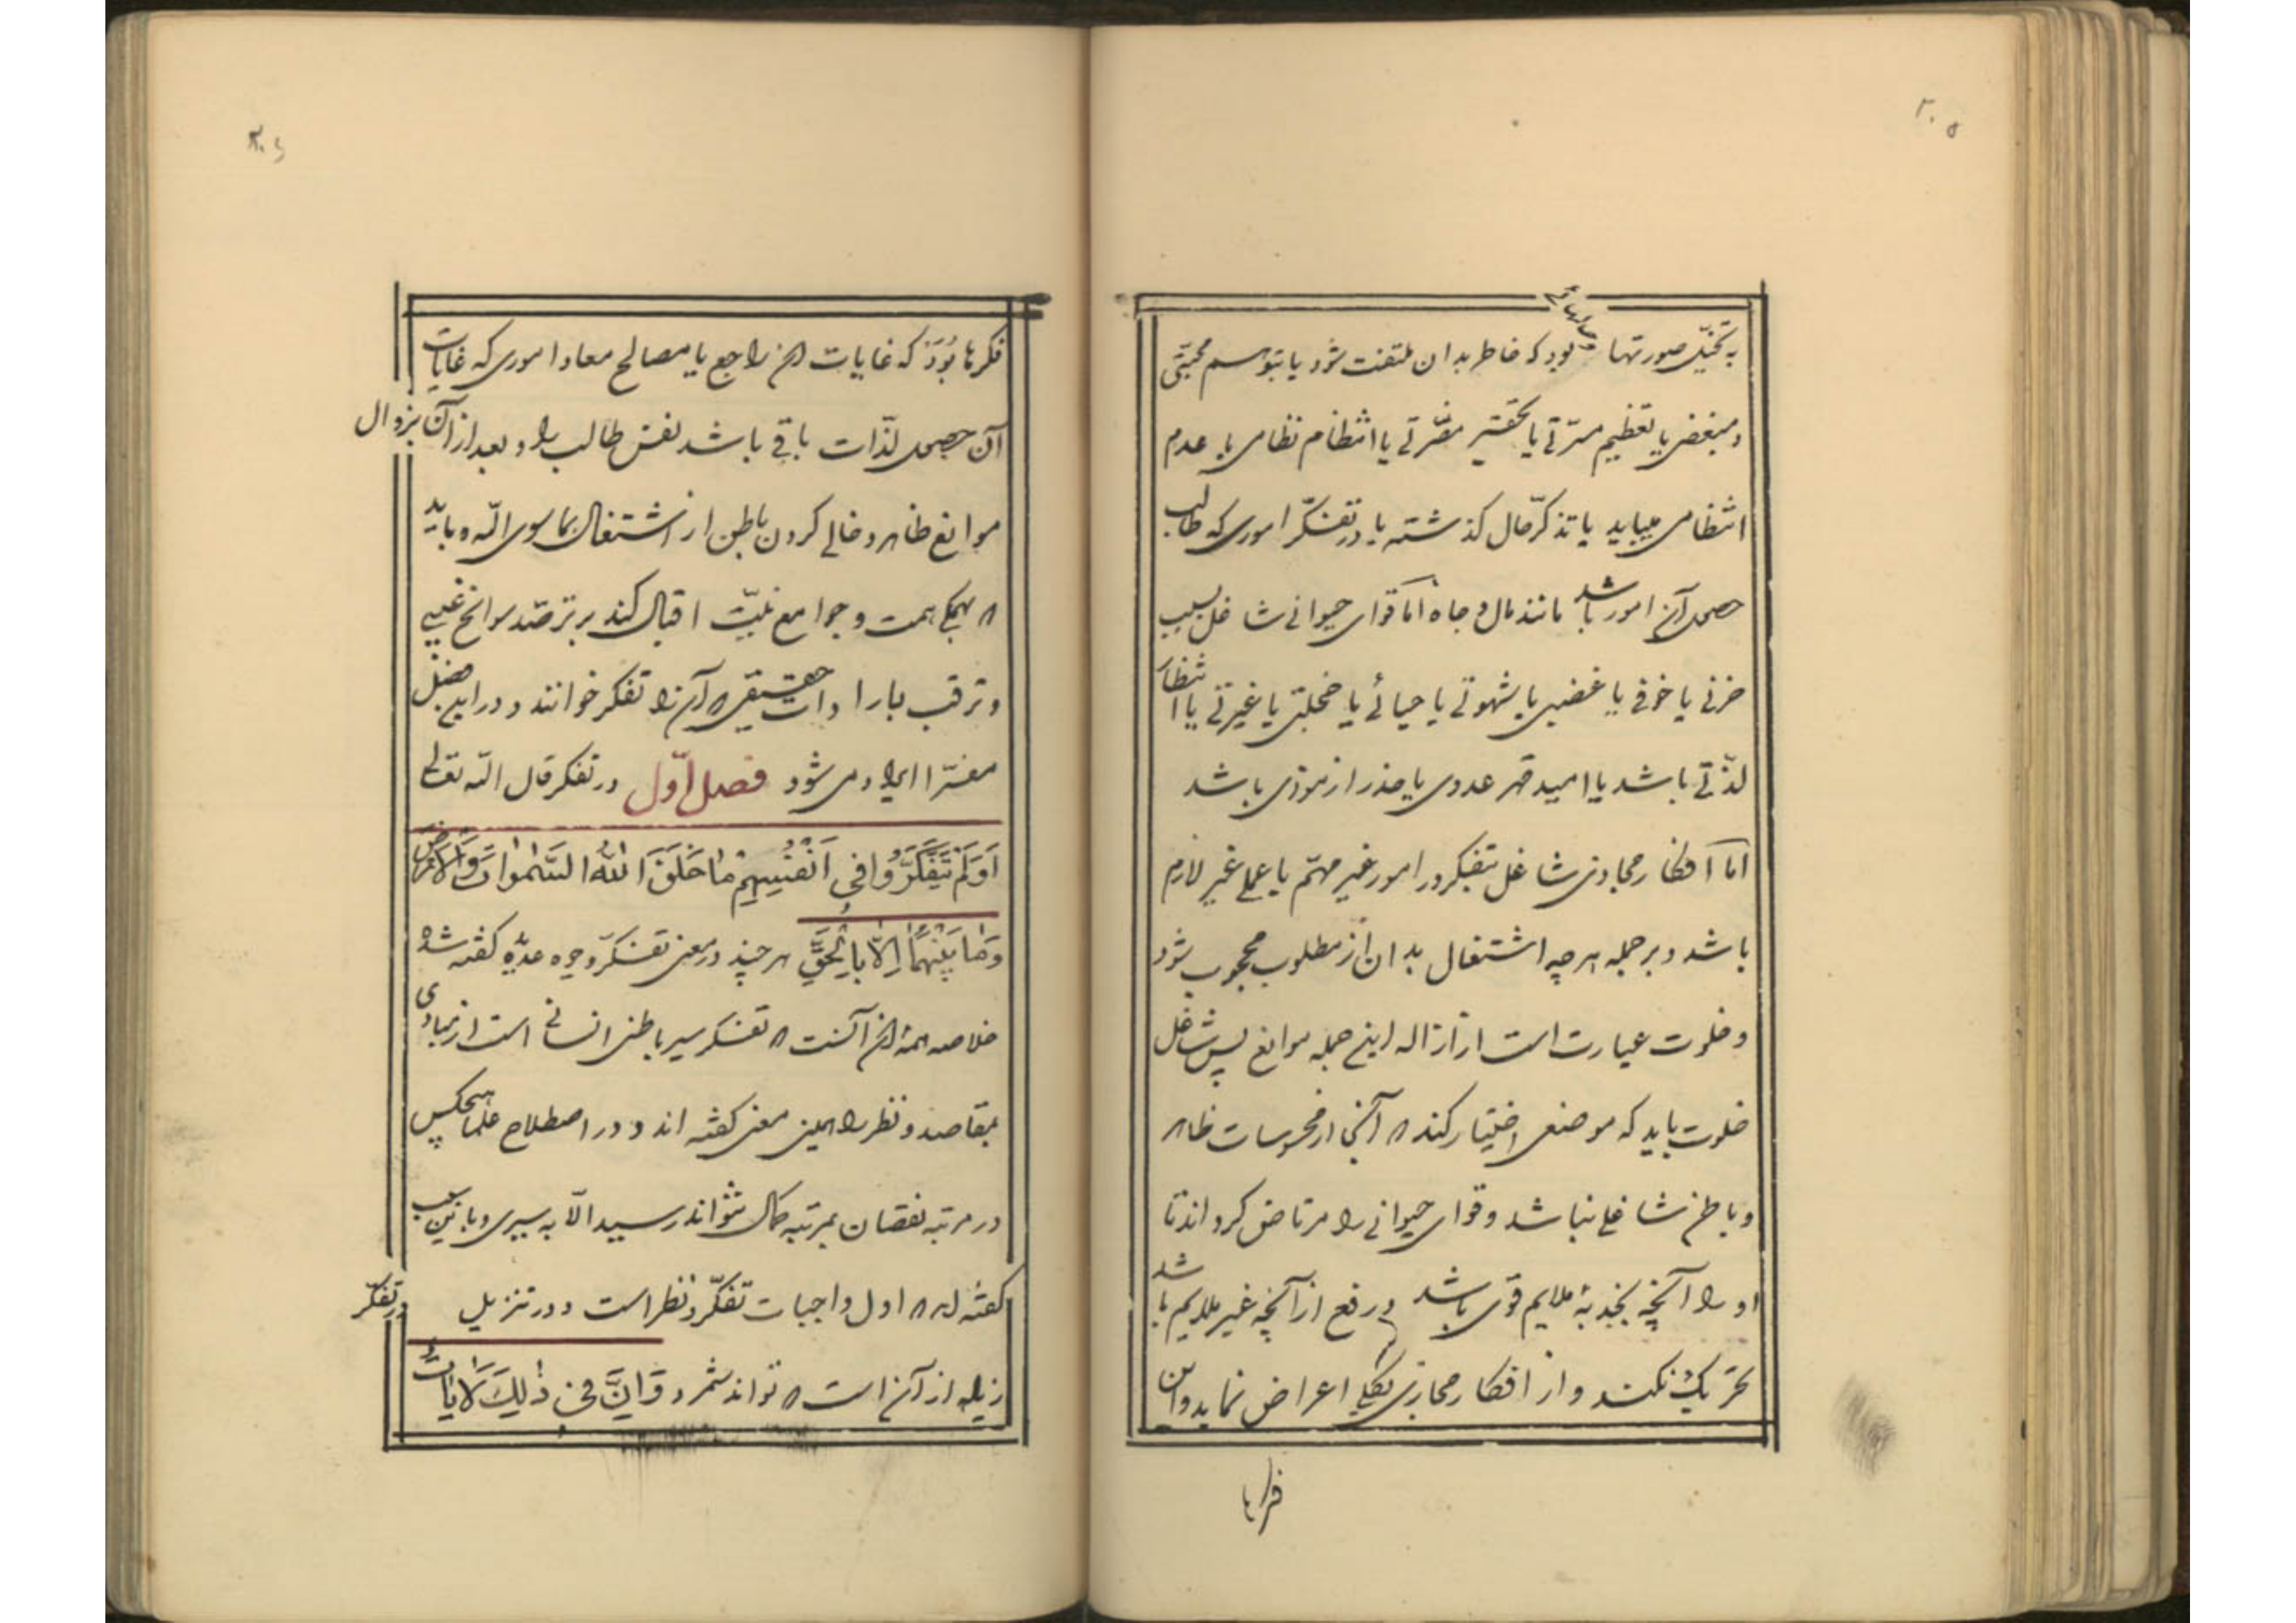 ۲۰۵
به تخیّل صورتها و حالهائی بود که خاطر بدان ملتفت شود یا بتوسم محبّتی
و مبغضی یا تعظیم مسرّتی یا تحقیر مضرّتی یا انتظام نظامی یا عدم
انتظامی میباید یا تذکّر حال گذشته یا در تفکّر اموری که طالب
حصول آن امور باشد مانند مال و جاه اما قوای حیوانی شاغل بسبب
حزنی یا خوفی یا غضبی یا شهوتی یا حیائی یا خجلتی یا غیرتی یا انتظار
لذّتی باشد یا امید قهر عدوی یا حذر از موذی باشد
اما افکار مجازی شاغل بتفکر در امور غیر مهمّ یا عملی غیر لازم
باشد و بر جمله هرچه اشتغال بدان از مطلوب محجوب شود
و خلوت عبارت است از ازاله این جمله موانع پس شاغل
خلوت باید که موضعی اختیار کند که آنجا از محسوسات ظاهر
و باطن شاغلی نباشد و قوای حیوانی را مرتاض گرداند تا
او را آنچه بجذبهٔ ملایم قوی باشد و رفع از آنچه غیر ملایم باشد
تحریک نکند و از افکار مجازی بکلی اعراض نماید و این
فکرها
۲۰۶
فکرها بُوَد که غایات آن راجع با مصالح معاد اموری که غایات
آن حصول لذّات باقی باشد نفس طالب را و بعد از آن بزوال
موانع ظاهر و خالی کردن باطن از اشتغال بما سوی الله و باید
که بهمگی همت و جوامع نیّت اقبال کند بر ترصّد سوانح غیبی
و ترقب باراوات حقیقی که آن را تفکر خوانند و در این فصل
مفسّرا ایراد می‌شود فصل اوّل در تفکر قال الله تعالی
اَوَلَمْ یَتَفَکَّرُوا فی اَنْفُسِهِمْ مٰا خَلَقَ اللهُ السَّمٰواتِ وَالاَرْضَ
وَمٰا بَیْنَهُمٰا اِلاّٰ بِالْحَقِّ هر چند در معنی تفکّر وجوه عدّه گفته شده
خلاصه همهٔ آن آنست که تفکر سیر باطنی انسانی است از مبادی
بمقاصد و نظر را همین معنی گفته اند و در اصطلاح علما هیچکس
در مرتبه نقصان بمرتبه کمال نتواند رسید الّا به سیری و باین سبب
گفته اند که اول واجبات تفکّر و نظر است و در تنزیل در تفکّر
زیاده از آن است که تواند شمرد وَ اِنَّ فی ذٰلِکَ لَاٰیٰاتٍ